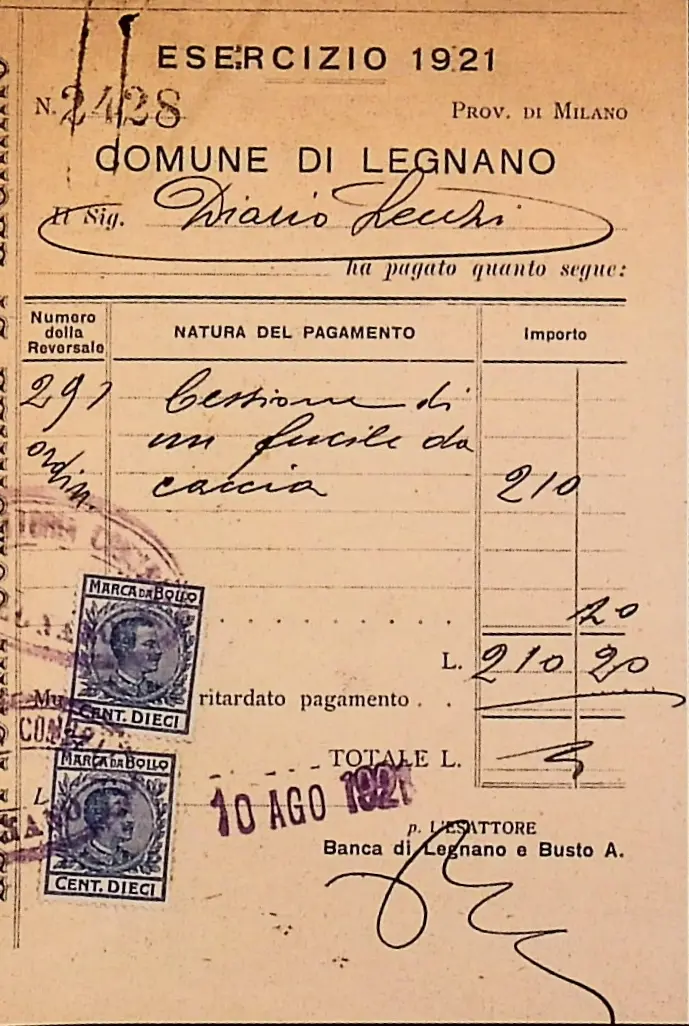 ESERCIZIO 1921
N. 2428 PROV. DI MILANO
COMUNE DI LEGNANO
Il Sig. Diario
ha pagato quanto segue:
Numero della Reversale NATURA DEL PAGAMENTO Importo
297 Cessione di
ordin. un fucile da
caccia 210
20
L. 210 20
ritardato pagamento . .
TOTALE L.
MARCA DA BOLLO
CENT. DIECI
MARCA DA BOLLO
CENT. DIECI
10 AGO 1921
p. L'ESATTORE
Banca di Legnano e Busto A.